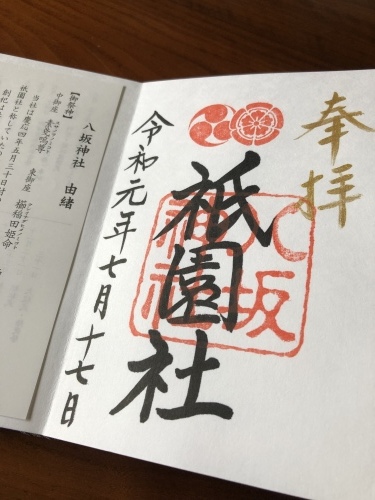 奉拝
八坂神社
祇園社
令和元年七月十七日
八坂神社 由緒
【御祭神】
中御座 素戔嗚尊
東御座 櫛稲田姫命
当社は慶応四年五月三十日付の
祇園社と称していた